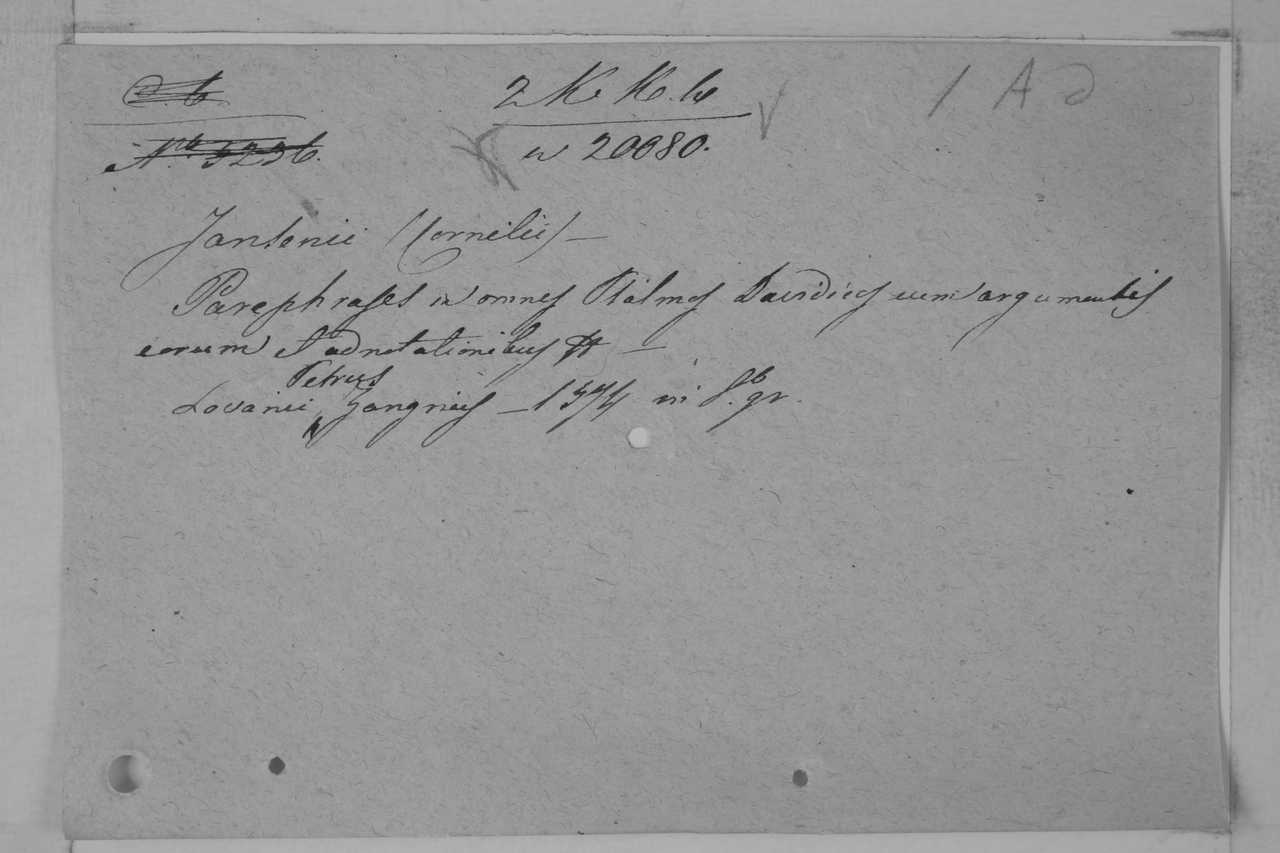 C. b
2 K K. b
1 A d
Nro 5236.
w 20080.
Jansenii (Cornelii) —
Paraphrases in omnes Psalmos Davidicos cum argumentis
eorum et adnotationibus —
Petrus
Lovanii, Zangrius — 1574 in 8.b gr.